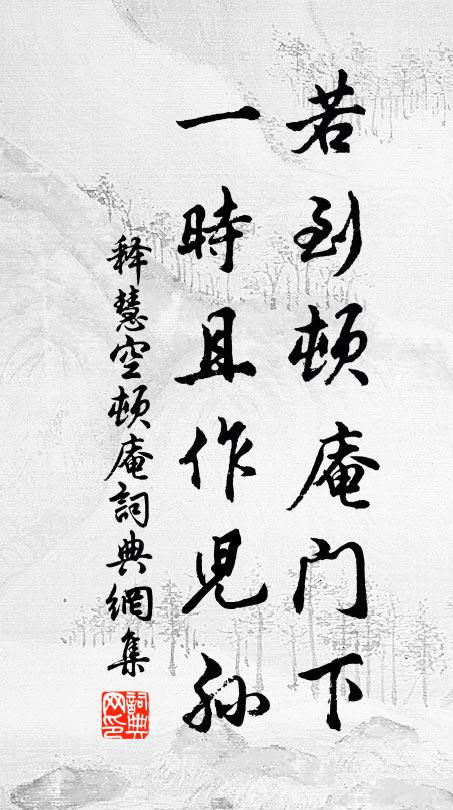 若到顿庵门下
一時且作児孙
释慧空顿庵詞典網集
詞典网印